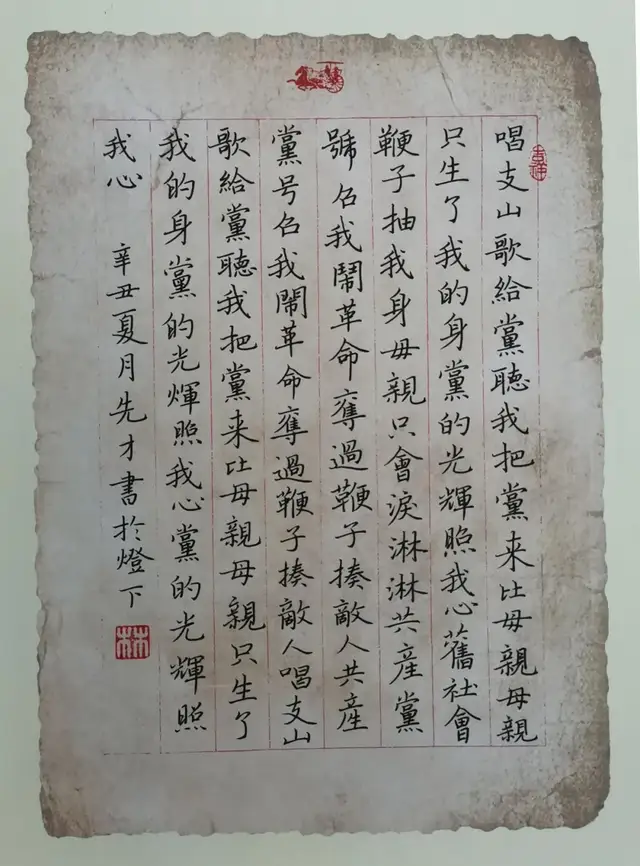 唱支山歌給黨聽我把黨来比母親母親
只生了我的身黨的光輝照我心舊社會
鞭子抽我身母親只會淚淋淋共産黨
號召我鬧革命奪過鞭子揍敵人共産
黨号召我鬧革命奪過鞭子揍敵人唱支山
歌給黨聽我把黨来比母親母親只生了
我的身黨的光煇照我心黨的光輝照
我心
辛丑夏月先才書於燈下
吉祥
林